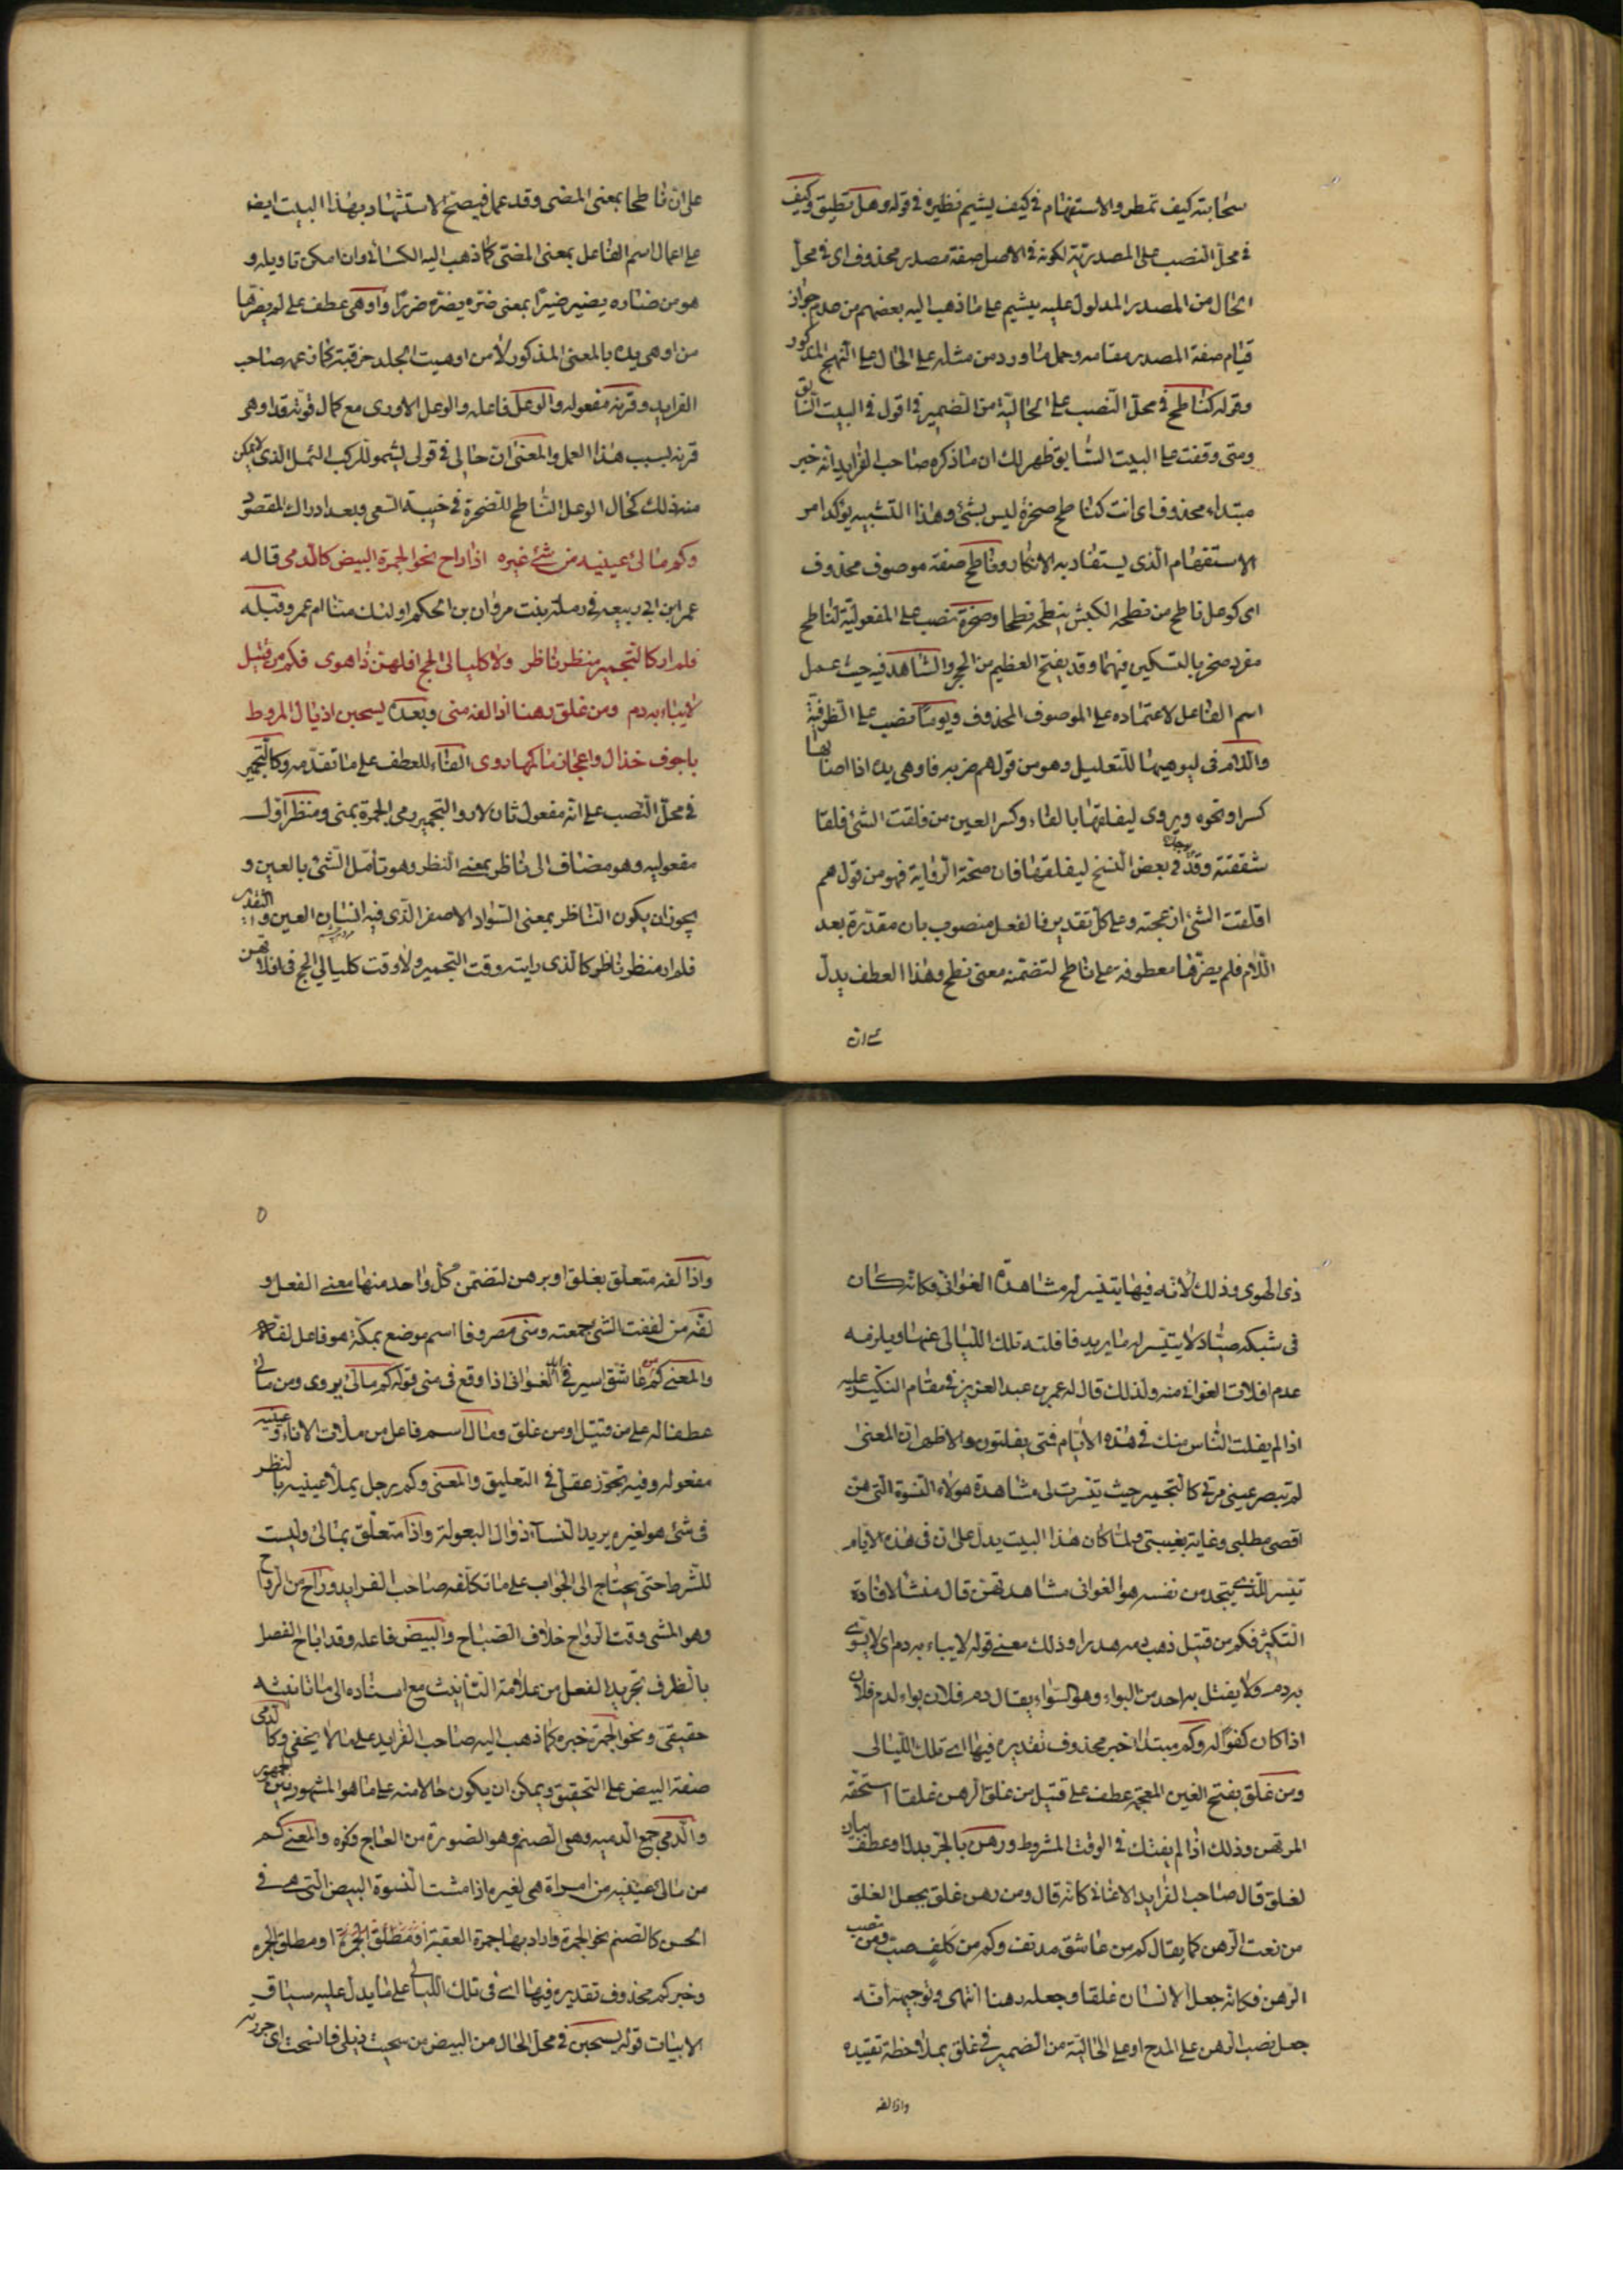 سحابته كيف تمطر والاستفهام في كيف يشيم نظيره في قوله وهل تطيق وكيف
في محل النصب على المصدرية لكونه في الاصل صفة مصدر محذوف اى في محل
الحال من المصدر المدلول عليه بيشيم على ما ذهب اليه بعضهم من عدم جواز
قيام صفة المصدر مقامه وحمل ما ورد من مثله على الحال على النهج المذكور
وقوله كناطح في محل النصب على الحالية من الضمير في اقول في البيت السابق
ومتى وقفت على البيت السابق ظهر لك ان ما ذكره صاحب الفرايد انه خبر
مبتداء محذوف اى انت كناطح صخرة ليس بشئ وهذا التشبيه يؤكد امر
الاستفهام الذى يستفاد به الانكار وناطح صفة موصوف محذوف
اى كوعل ناطح من نطحه الكبش ينطحه نطحا وصخرة نصب على المفعولية لناطح
مفرد صخر بالتسكين فيهما وقد يفتح العظيم من الحجر والشاهد فيه حيث عمل
اسم الفاعل لاعتماده على الموصوف المحذوف ويوما نصب على الظرفية
واللام في ليوهيها للتعليل وهو من قولهم ضربه فاوهى يده اذا اصابها
كسر او نحوه ويروى ليفلقها بالفاء وكسر العين من فلقت الشئ فلقا
شققته وقد وجد في بعض النسخ ليقلقها فان صحت الرواية فهو من قولهم
اقلقت الشئ ازعجته وعلى كل تقدير فالفعل منصوب بان مقدرة بعد
اللام فلم يضرها معطوفة على ناطح لتضمنه معنى نطح وهذا العطف يدل
على ان
على ان ناطحا بمعنى المضى وقد عمل فيصح الاستشهاد بهذا البيت ايض
على اعمال اسم الفاعل بمعنى المضى كما ذهب اليه الكسائى وان امكن تاويله و
هو من ضاره يضيره ضيرا بمعنى ضره يضره ضررا واوهى عطف على لم يضرها
من اوهى يده بالمعنى المذكور لا من اوهيت الجلد خرقته كما زعمه صاحب
الفرايد وقرنه مفعوله والوعل فاعله والوعل الاروى مع كمال قوته قد اوهى
قرنه بسبب هذا العمل والمعنى ان حالى في قولى لشمو للركب الثمل الذى لا يمكن
منه ذلك كحال الوعل الناطح للصخرة في خيبة السعى وبعد ادراك المقصود
وكم مالئ عينيه من شئ غيره اذا راح نحو الجمرة البيض كالدمى قاله
عمر ابن ابى ربيعه في رملة بنت مروان بن الحكم او لبنت هشام ام عمرو قبله
فلم ار كالتجمير منظر ناظر ولا كليالى الحج افلتن ذا هوى فكم من قتيل
لا يباء به دم ومن غلق رهنا اذا لفه منى وبعده يسحبن اذيال المروط
باجوف خذال واعجاز مآكمها روى الفاء للعطف على ما تقدمه وكالتجمير
في محل النصب على انه مفعول ثان لار والتجمير رمى الجمرة بمنى ومنظر اول
مفعوليه وهو مضاف الى ناظر بمعنى النظر وهو تأمل الشئ بالعين و
يجوز ان يكون الناظر بمعنى السواد الاصغر الذى فيه انسان العين والتقدير
فلم ار منظر ناظر كالذى رايته وقت التجمير ولا وقت كليالى الحج في افلاتهن
ذى الهوى وذلك لانه فيها يتيسر له مشاهدة الغوانى فكانه كان
في شبكه صياد لا يتيسر له ما يريد فافلتته تلك الليالى عنها ويلزمه
عدم افلات الغوانى منه ولذلك قال له عمر بن عبد العزيز في مقام النكير عليه
اذا لم يفلت الناس منك في هذه الايام فمتى يفلتون والاظهر ان المعنى
لم تبصر عينى مرئى كالتجمير حيث تيسرت لى مشاهدة هؤلاء النسوة التى هن
اقصى مطلبى وغاية بغيتى ولما كان هذا البيت يدل على ان في هذه الايام
تيسر للذى يتجد من نفسه هوا الغوانى مشاهدتهن قال منشأ لافادة
التكثير فكم من قتيل ذهب دمه هدرا وذلك معنى قوله لا يباء به دم اى لا يستوى
به دمه ولا يقتل به احد من البواء وهو السواء يقال دم فلان بواء لدم فلان
اذا كان كفوا له وكم مبتدا خبره محذوف تقديره فيها اى تلك الليالى
ومن غلق بفتح الغين المعجمة عطف على قتيل من غلق الرهن غلقا استحقه
المرتهن وذلك اذا لم يفتك في الوقت المشروط ورهن بالجر بدل او عطف بيان
لغلق قال صاحب الفرايد الاغانى كانه قال ومن رهن غلق بجعل الغلق
من نعت الرهن كما يقال كم من عاشق مدنف وكم من كلف صب ومن نصب
الرهن فكانه جعل الانسان غلقا وجعله رهنا انتهى وتوجيهه انه
جعل نصب الرهن على المدح او على الحالية من الضمير في غلق بملاحظة تقييده
واذا لفه
٥
واذا لفه متعلق بغلق او برهن لتضمن كل واحد منها معنى الفعل و
لفه من لففت الشئ جمعته ومنى مصروفا اسم موضع بمكة هو فاعل لفه
والمعنى كم من عاشق اسير في يد الغوانى اذا وقع في منى قوله كم مالئ يروى ومن مالئ
عطفا له على من قتيل او من غلق ومالئ اسم فاعل من ملات الاناء وعينيه
مفعوله وفيه تجوز عقلى في التعليق والمعنى وكم رجل يملأ عينيه بالنظر
في شئ هو لغيره يريد النساء ذوال البعولة واذا متعلق بمالئ وليست
للشرط حتى يحتاج الى الجواب على ما تكلفه صاحب الفرايد وراح من الرواح
وهو المشى وقت الرواح خلاف الصباح والبيض فاعله وقد اباح الفصل
بالظرف تجريد الفعل من علامة التأنيث مع اسناده الى ما تانيثه
حقيقى ونحو الجمرة خبره كما ذهب اليه صاحب الفرايد على ما لا يخفى وكالدمى
صفة البيض على التحقيق ويمكن ان يكون حالا منه على ما هو المشهور بين الجمهور
والدمى جمع الدميه وهو الصنم وهو الصورة من العاج ونحوه والمعنى كم
من مالئ عينيه من امراة هى لغيره اذا مشت النسوة البيض التى هى في
الحسن كالصنم نحو الجمرة واراد بها جمرة العقبة او مطلق الجمرة
وخبر كم محذوف تقديره فيها اى في تلك الليالى على ما يدل عليه سياق
الابيات قوله يسحبن في محل الحال من البيض من سحبت ذيلى فانسحب اى جررته